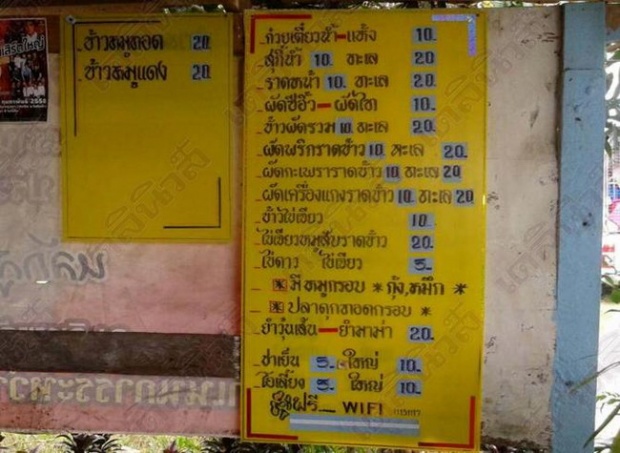 ข้าวหมูทอด 20
ข้าวหมูแดง 20
ก๋วยเตี๋ยวน้ำ-แห้ง 10.
สุกี้น้ำ 10. ทะเล 20
ราดหน้า 10. ทะเล 20.
ผัดซีอิ้ว-ผัดไท 10.
ข้าวผัดรวม 10. ทะเล 20.
ผัดพริกราดข้าว 10. ทะเล 20.
ผัดกะเพราราดข้าว 10. ทะเล 20
ผัดเครื่องแกงราดข้าว 10. ทะเล 20
ข้าวไข่เจียว 10.
ไข่เจียวหมูสับราดข้าว 20.
ไข่ดาว ไข่เจียว 5.
* มี หมูกรอบ * กุ้ง,หมึก *
* ปลาดุกทอดกรอบ *
ยำวุ้นเส้น - ยำมาม่า 20.
ชาเย็น 5. ใหญ่ 10.
โอเลี้ยง 5. ใหญ่ 10.
ฟรี WIFI